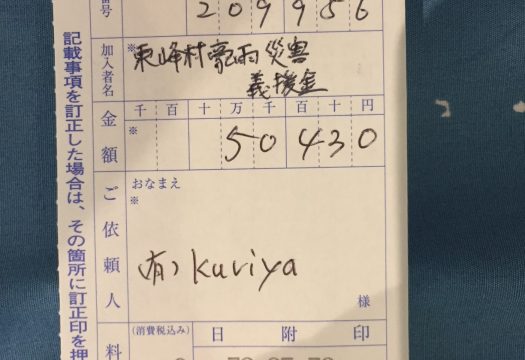 番号 209956
加入者名 ※東峰村豪雨災害
義援金
金額 千百十万千百十円
※ 50430
ご依頼人 おなまえ
※
(有)Kuriya
様
料 (消費税込み) 日附印
記載事項を訂正した場合は、その箇所に訂正印を押